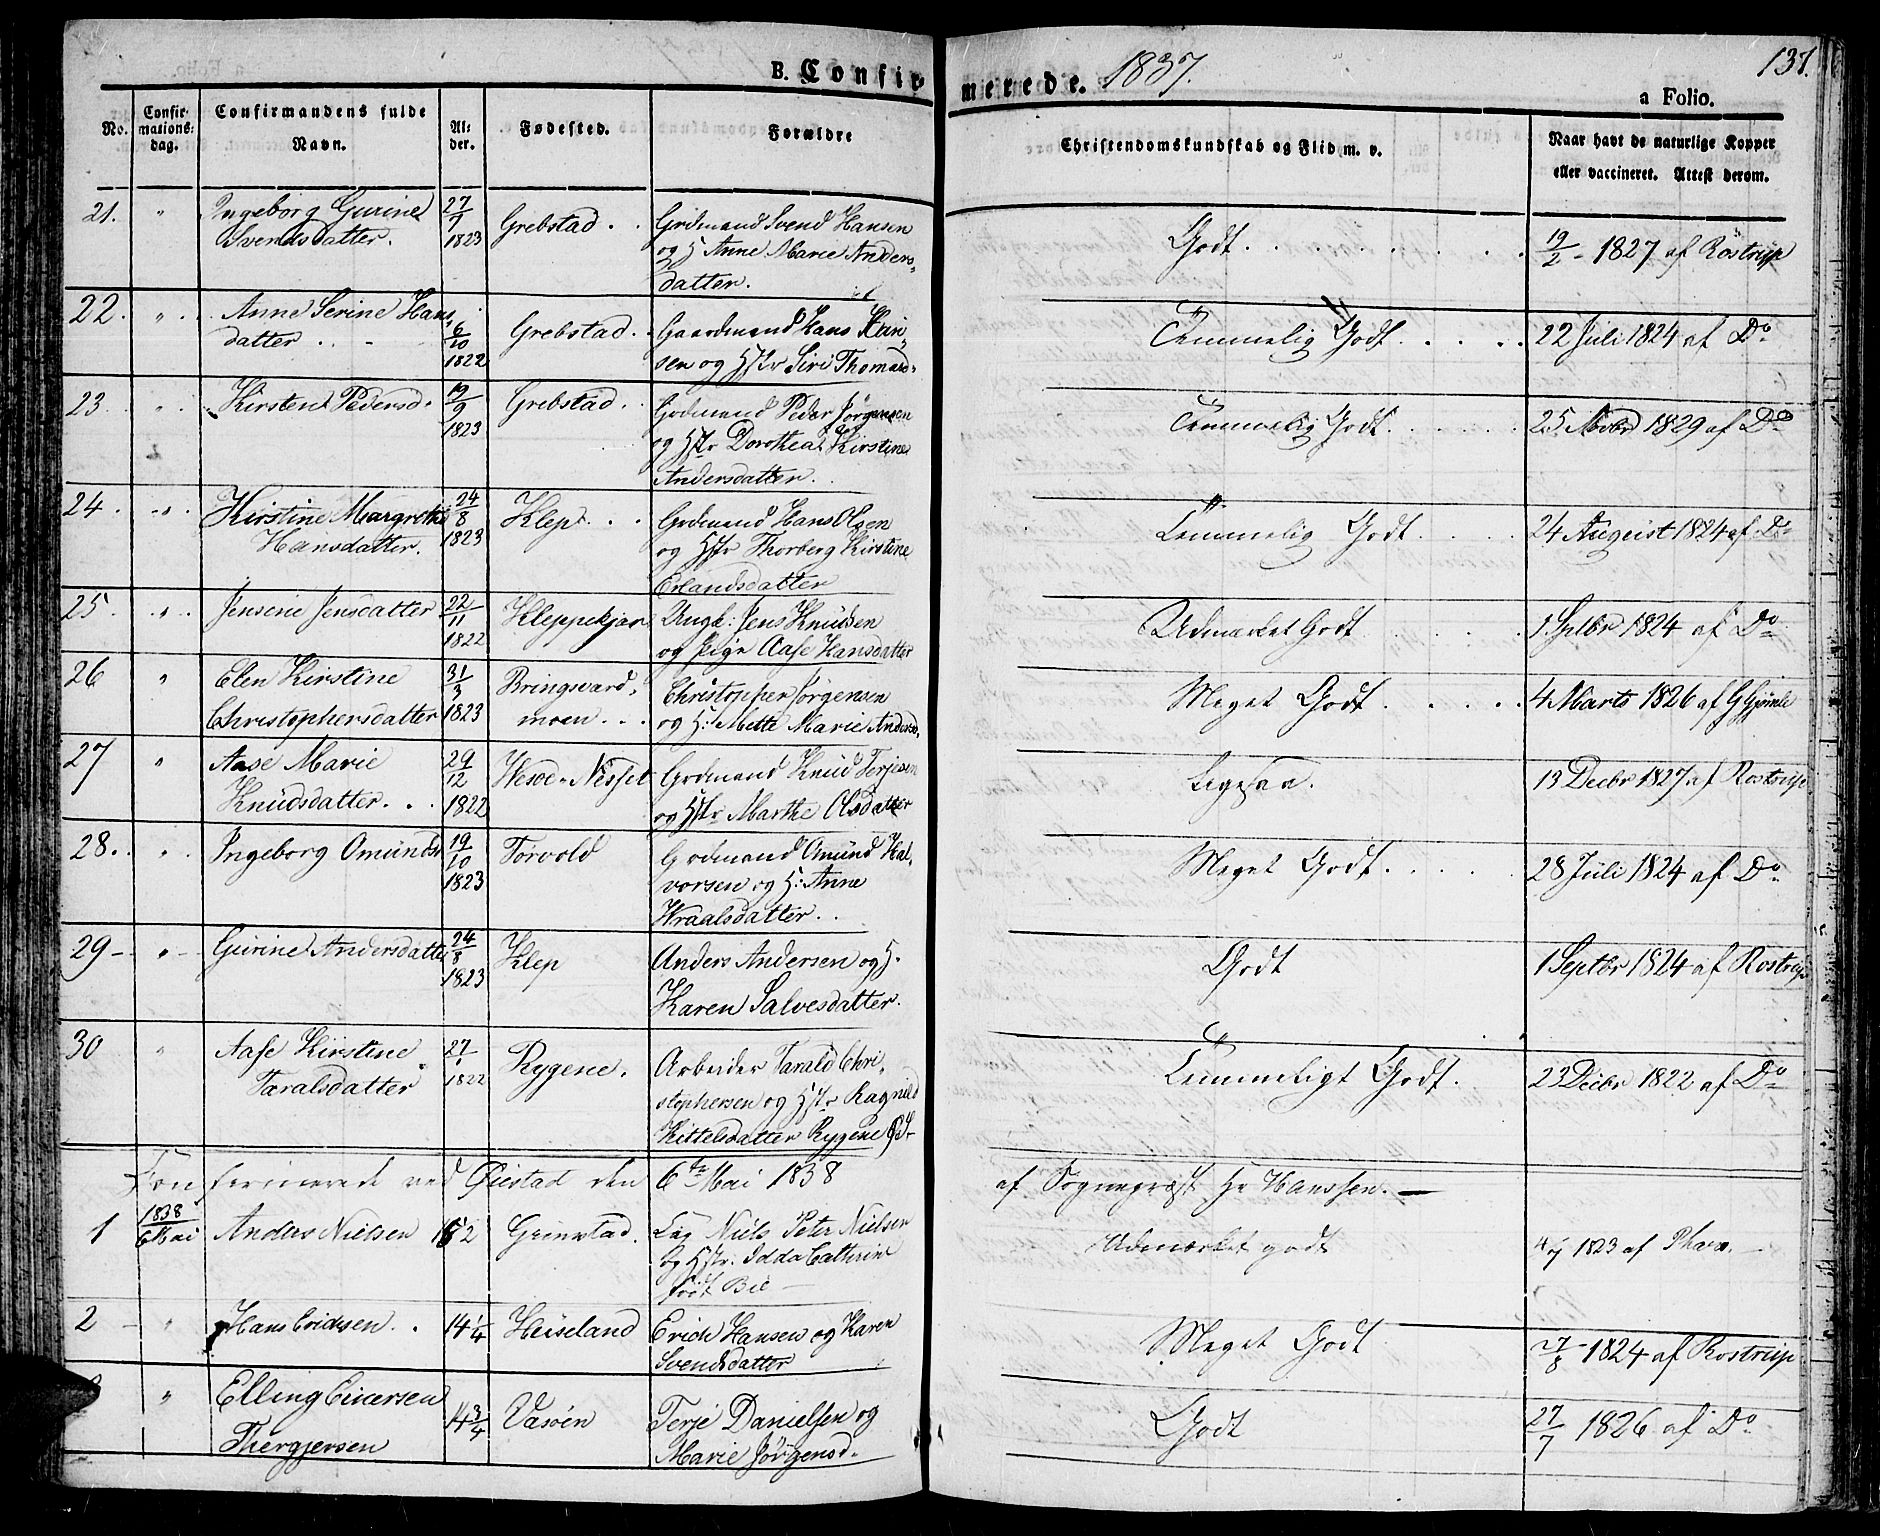 B. Confirmerede. 1837. 137.
a Folio.
No. Confirmations: dag. Confirmandens fulde Navn. Alder. Fødested. Forældre Christendomskundskab og Flid m. v. Naar havt de naturlige Kopper eller vaccineret. Attest derom.
21. " Ingeborg Gurine 27/7 Grebstad . . Grdmand Svend Hansen Godt . . . 19/2 - 1827 af Rostrup
Svendsdatter. 1823 og H Anne Marie Anders-
datter.
22. " Anne Serine Hans 6/10 Grebstad . . Gaardmand Hans Hen- Temmelig Godt . . . . 22 Juli 1824 af Do
datter . . - 1822 sen og Hstr Siri Thomasd-
23. " Kirsten Pedersd. 19/9 Grebstad . . Grdmand Peder Jørgensen Temmelig Godt . . . . 25 Novbr 1829 af Do
1823 og Hstr Dorothea Kirstine
Andersdatter.
24. " Kirstine Margrethe 24/8 Klep . . . Grdmand Hans Olsen Temmelig Godt . . . . 24 August 1824 af Do
Hansdatter. 1823 og Hstr Thorberg Kirstine
Erlandsdatter
25. " Jensine Jensdatter 22/11 Kleppekjær Ungk: Jens Knudsen Udmærket Godt . . . . 1 Septbr 1824 af Do
1822 og Pige Aase Hansdatter
26 " Elen Kirstine 31/3 Bringsværd- Christopher Jørgensen Meget Godt . . . . 4 Marts 1826 af G Gjømle
Christophersdatter 1823 moen . . . og H: Mette Marie Andersd.
27 " Aase Marie 29/12 Wesøe-Nesset Grdmand Knud Terjesen Ligesaa. 13 Decbr 1827 af Rostrup
Knudsdatter . . 1822 og Hstr Marthe Olsdatter
28. " Ingeborg Omunds 19/10 Torvold Grdmand Omund Hal- Meget Godt . . . . 28 Juli 1824 af Do
1823 vorsen og H: Anne
Wraalsdatter . .
29 - " Gurine Andersdatter 24/8 Klep Anders Andersen og H. Godt 1 Septbr 1824 af Rostrup
1823 Karen Salvesdatter.
30 " Aase Kirstine 27/ Rygene. Arbeider Tarald Chri- Temmeligt Godt. 23 Decbr 1822 af Do
Taralsdatter 1822 stophersen og Hstr Ragnild
Kittelsdatter Rygene
Confermerede ved Øiestad den 6te Mai 1838 af Sognepræst Hr Hanssen. —
1 1838 6 Mai Anders Nielsen Grimstad. Niels Peter Nielsen Udmærket godt 4/7 1823 af
og Hstr. Idda Cathrine
født Bie —
2 - " Hans Erichsen . 14 1/4 Heiseland Erich Hansen og Karen Meget Godt 27/8 1824 af Rostrup
Svendsdatter
" Elling Einersen 14 3/4 Vasøen Terje Danielsen og Godt 27/7 1826 af Do
Thergjersen Marie Jørgensd.